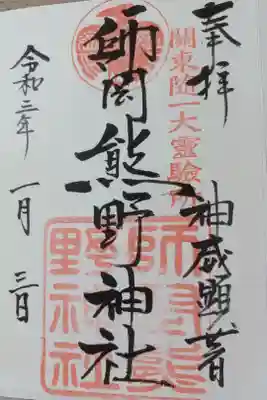 奉拝
神威顕著
關東随一大靈驗所
師岡熊野神社
令和三年
一月
三日